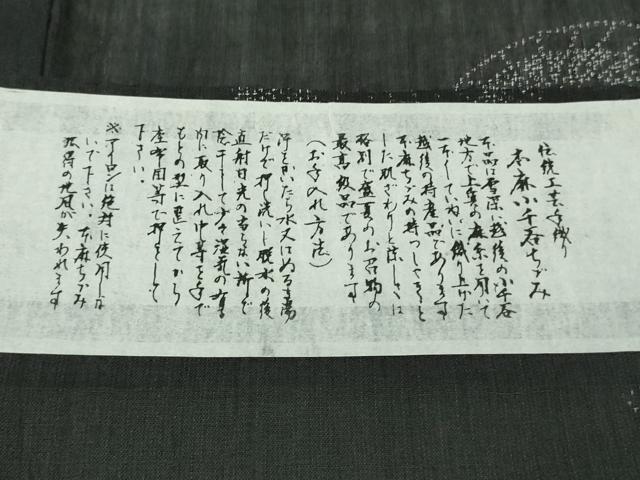 伝統工芸手織り
本麻小千谷ちぢみ
本品は雪深い越後の小千谷
地方で上質の麻糸を用いて
一本一本ていねいに織り上げた
越後の特産品であります
本麻ちぢみの持つしゃきっと
した肌ざわりと涼しさは
格別で盛夏のお召物の
最高級品であります
(お手入れ方法)
汗をかいたら水又はぬるま湯
だけで押し洗いし脱水の後
直射日光の当らない所で
陰干しして少々湿気のある
内に取り入れ巾等を手で
もとの型に整えてから
座布団等で押をして
下さい。
※アイロンは絶対に使用しな
いで下さい。本麻ちぢみ
独得の地風が失われます